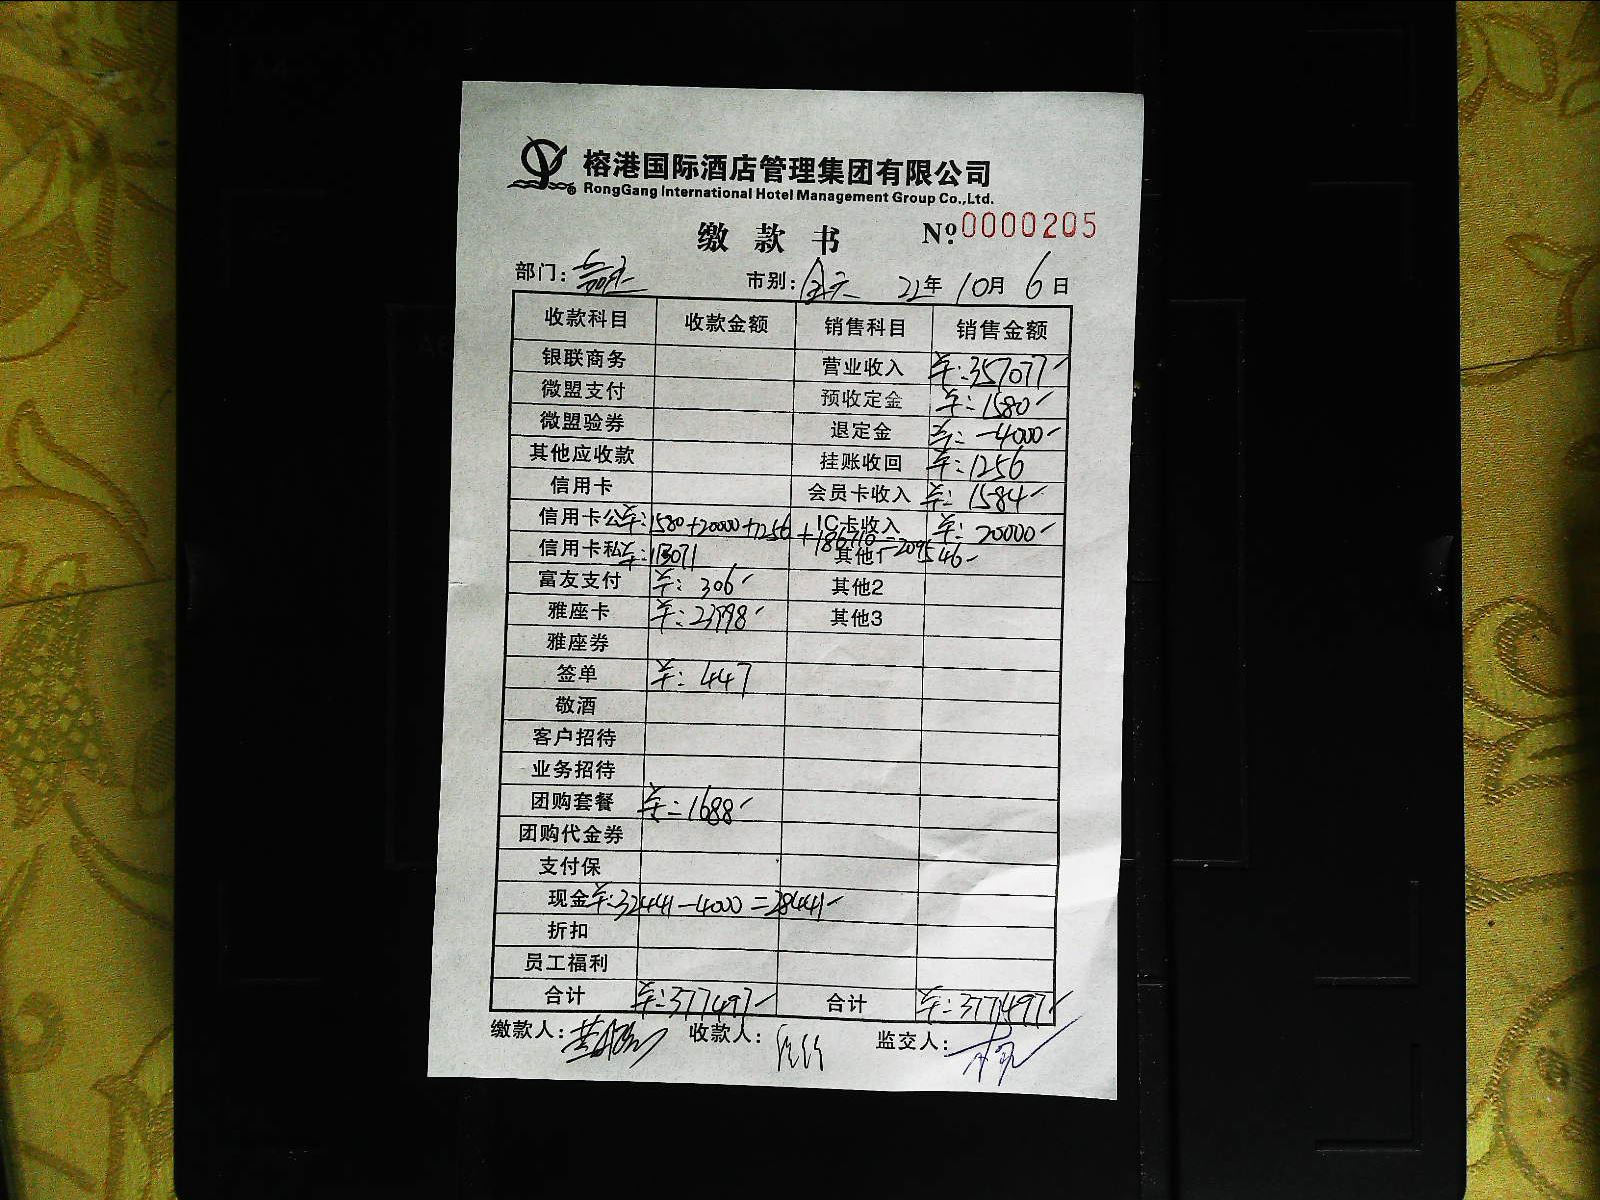 榕港国际酒店管理集团有限公司
RongGang International Hotel Management Group Co.,Ltd.
缴款书 Nº 0000205
部门: 市别: 全天 22年 10月 6日
收款科目 收款金额 销售科目 销售金额
银联商务 营业收入 ¥:357077
微盟支付 预收定金 ¥:1580
微盟验券 退定金 ¥:-4000
其他应收款 挂账收回 ¥:1256
信用卡 会员卡收入 ¥:1584
信用卡公 ¥:1580+20000+1256+186710=209546 IC卡收入 ¥:20000
信用卡私 ¥:113071 其他1
富友支付 ¥:306 其他2
雅座卡 ¥:23998 其他3
雅座券
签单 ¥:447
敬酒
客户招待
业务招待
团购套餐 ¥:1688
团购代金券
支付保
现金 ¥:32441-4000=28441
折扣
员工福利
合计 ¥:377497 合计 ¥:377497
缴款人: 收款人: 监交人: